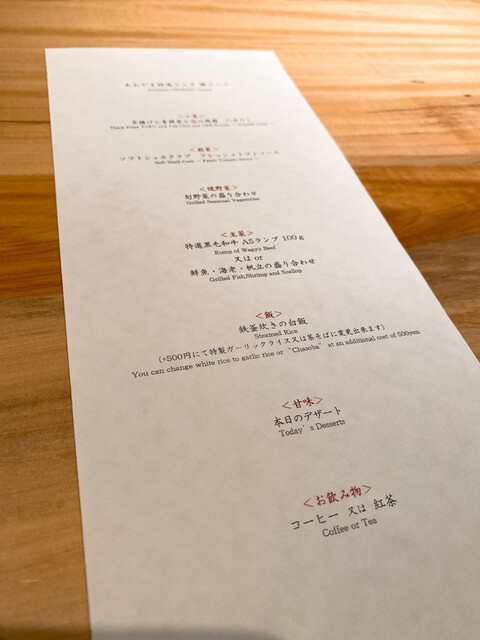 <小菜>
<前菜>
ソフトシェルクラブ フレッシュトマトソース
Soft Shell Crab ～Fresh Tomato Sauce～
<焼野菜>
旬野菜の盛り合わせ
Grilled Seasonal Vegetables
<主菜>
特選黒毛和牛 A5ランプ 100g
Rump of Wagyu Beef
又は or
鮮魚・海老・帆立の盛り合わせ
Grilled Fish,Shrimp and Scallop
<飯>
鉄釜炊きの白飯
Steamed Rice
(+500円にて特製ガーリックライス又は茶そばに変更出来ます)
You can change white rice to garlic rice or “Chasoba” at an additional cost of 500yen
<甘味>
本日のデザート
Today’s Desserts
<お飲み物>
コーヒー 又は 紅茶
Coffee or Tea